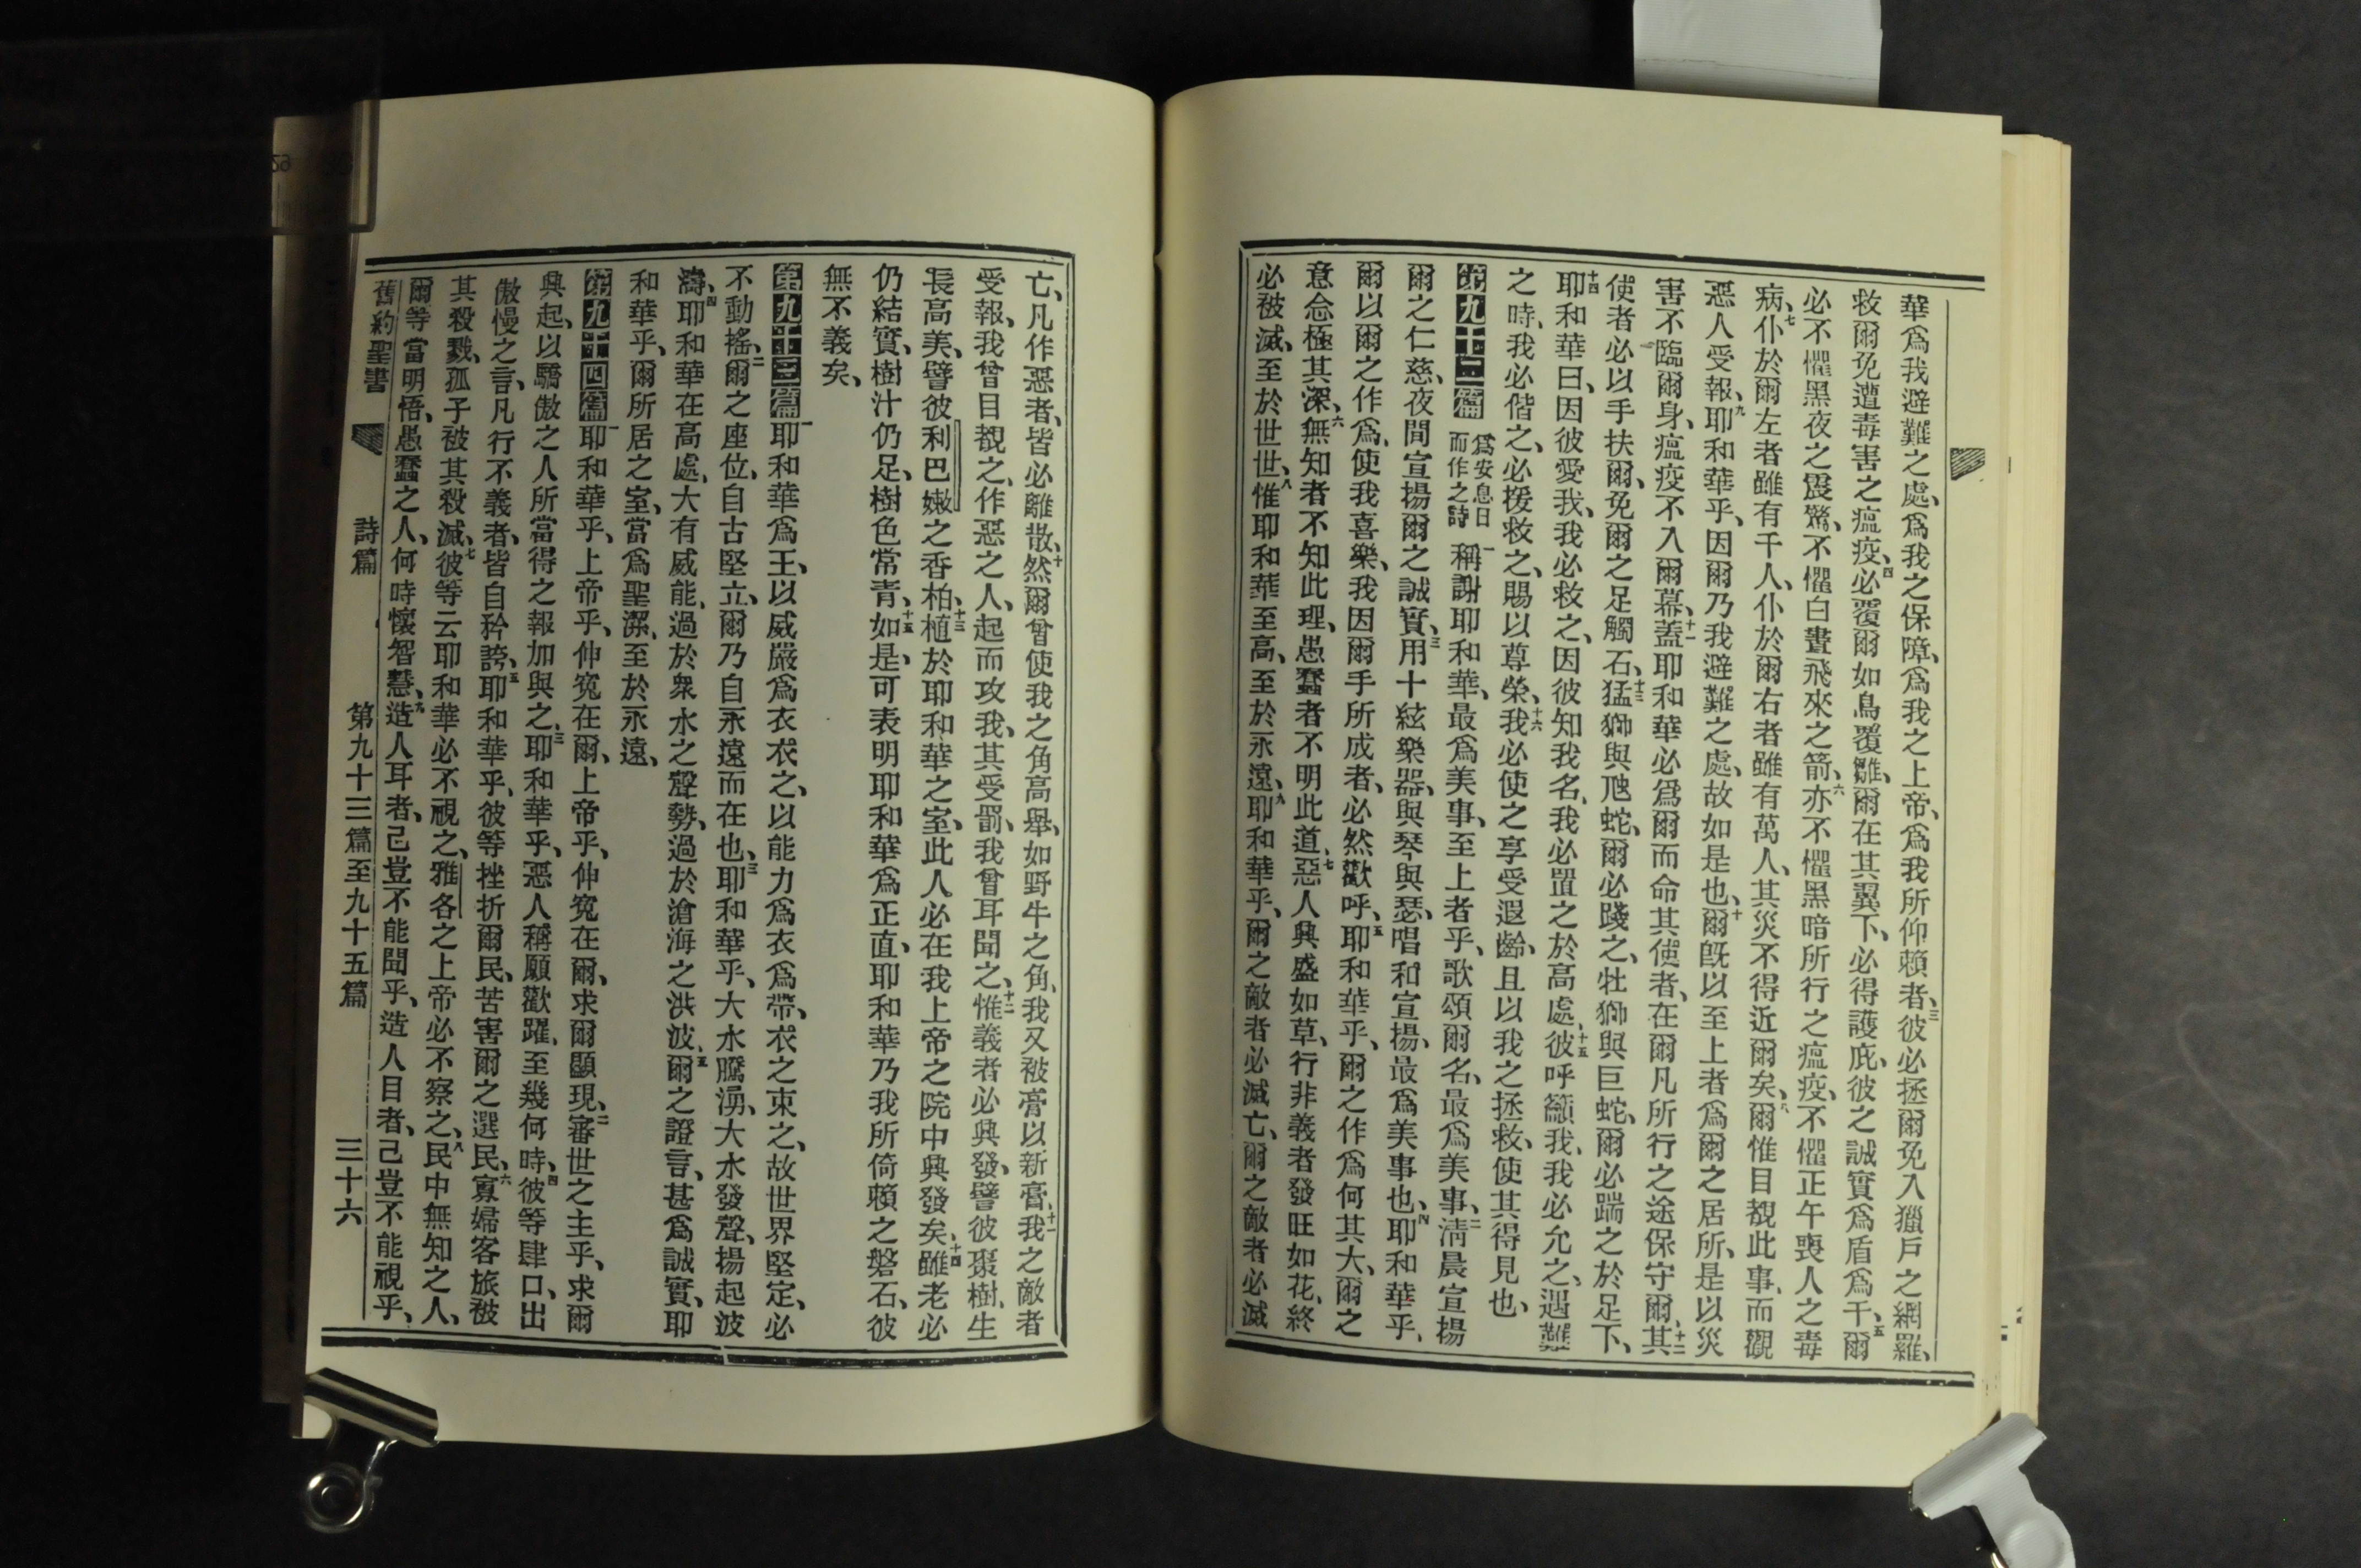 華爲我避難之處、爲我之保障、爲我之上帝、爲我所仰賴者、三彼必拯爾免入獵戶之網羅、
救爾免遭毒害之瘟疫、四必覆爾如鳥覆雛、爾在其翼下、必得護庇、彼之誠實爲盾爲干、五爾
必不懼黑夜之震驚、不懼白晝飛來之箭、六亦不懼黑暗所行之瘟疫、不懼正午喪人之毒
病、七仆於爾左者雖有千人、仆於爾右者雖有萬人、其災不得近爾矣、八爾惟目覩此事、而觀
惡人受報、九耶和華乎、因爾乃我避難之處、故如是也、十爾旣以至上者爲爾之居所、是以災
害不臨爾身、瘟疫不入爾幕、十一蓋耶和華必爲爾而命其使者、在爾凡所行之途保守爾、十二其
使者必以手扶爾、免爾之足觸石、十三猛獅與虺蛇、爾必踐之、牡獅與巨蛇、爾必踹之於足下、
十四耶和華曰、因彼愛我、我必救之、因彼知我名、我必置之於高處、十五彼呼籲我、我必允之、遇難
之時、我必偕之、必援救之、賜以尊榮、十六我必使之享受遐齡、且以我之拯救、使其得見也、
第九十二篇 爲安息日而作之詩 一稱謝耶和華、最爲美事、至上者乎、歌頌爾名、最爲美事、二淸晨宣揚
爾之仁慈、夜間宣揚爾之誠實、三用十絃樂器、與琴與瑟、唱和宣揚、最爲美事也、四耶和華乎、
爾以爾之作爲、使我喜樂、我因爾手所成者、必然歡呼、五耶和華乎、爾之作爲何其大、爾之
意念極其深、六無知者不知此理、愚蠢者不明此道、七惡人興盛如草、行非義者發旺如花、終
必被滅、至於世世、八惟耶和華至高、至於永遠、九耶和華乎、爾之敵者必滅亡、爾之敵者必滅
亡、凡作惡者、皆必離散、十然爾曾使我之角高舉、如野牛之角、我又被膏以新膏、十一我之敵者
受報、我曾目覩之、作惡之人、起而攻我、其受罰、我曾耳聞之、十二惟義者必興發、譬彼棗樹、生
長高美、譬彼利巴嫩之香柏、十三植於耶和華之室、此人必在我上帝之院中興發矣、十四雖老必
仍結實、樹汁仍足、樹色常青、十五如是、可表明耶和華爲正直、耶和華乃我所倚賴之磐石、彼
無不義矣、
第九十三篇 一耶和華爲王、以威嚴爲衣衣之、以能力爲衣爲帶、衣之束之、故世界堅定、必
不動搖、二爾之座位、自古堅立、爾乃自永遠而在也、三耶和華乎、大水騰湧、大水發聲、揚起波
濤、四耶和華在高處、大有威能、過於衆水之聲勢、過於滄海之洪波、五爾之證言、甚爲誠實、耶
和華乎、爾所居之室、當爲聖潔、至於永遠、
第九十四篇 一耶和華乎、上帝乎、伸寃在爾、上帝乎、伸寃在爾、求爾顯現、二審世之主乎、求爾
興起、以驕傲之人所當得之報加與之、三耶和華乎、惡人稱願歡躍、至幾何時、四彼等肆口、出
傲慢之言、凡行不義者、皆自矜誇、五耶和華乎、彼等挫折爾民、苦害爾之選民、六寡婦客旅被
其殺戮、孤子被其殺滅、七彼等云耶和華必不視之、雅各之上帝必不察之、八民中無知之人、
爾等當明悟、愚蠢之人、何時懷智慧、九造人耳者、己豈不能聞乎、造人目者、己豈不能視乎、
舊約聖書 詩篇 第九十三篇至九十五篇 三十六